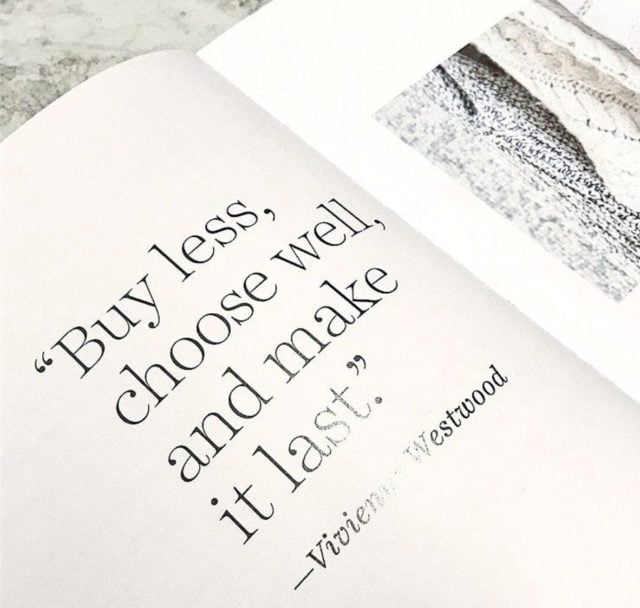 “Buy less,
choose well,
and make
it last”.
—Vivienne Westwood